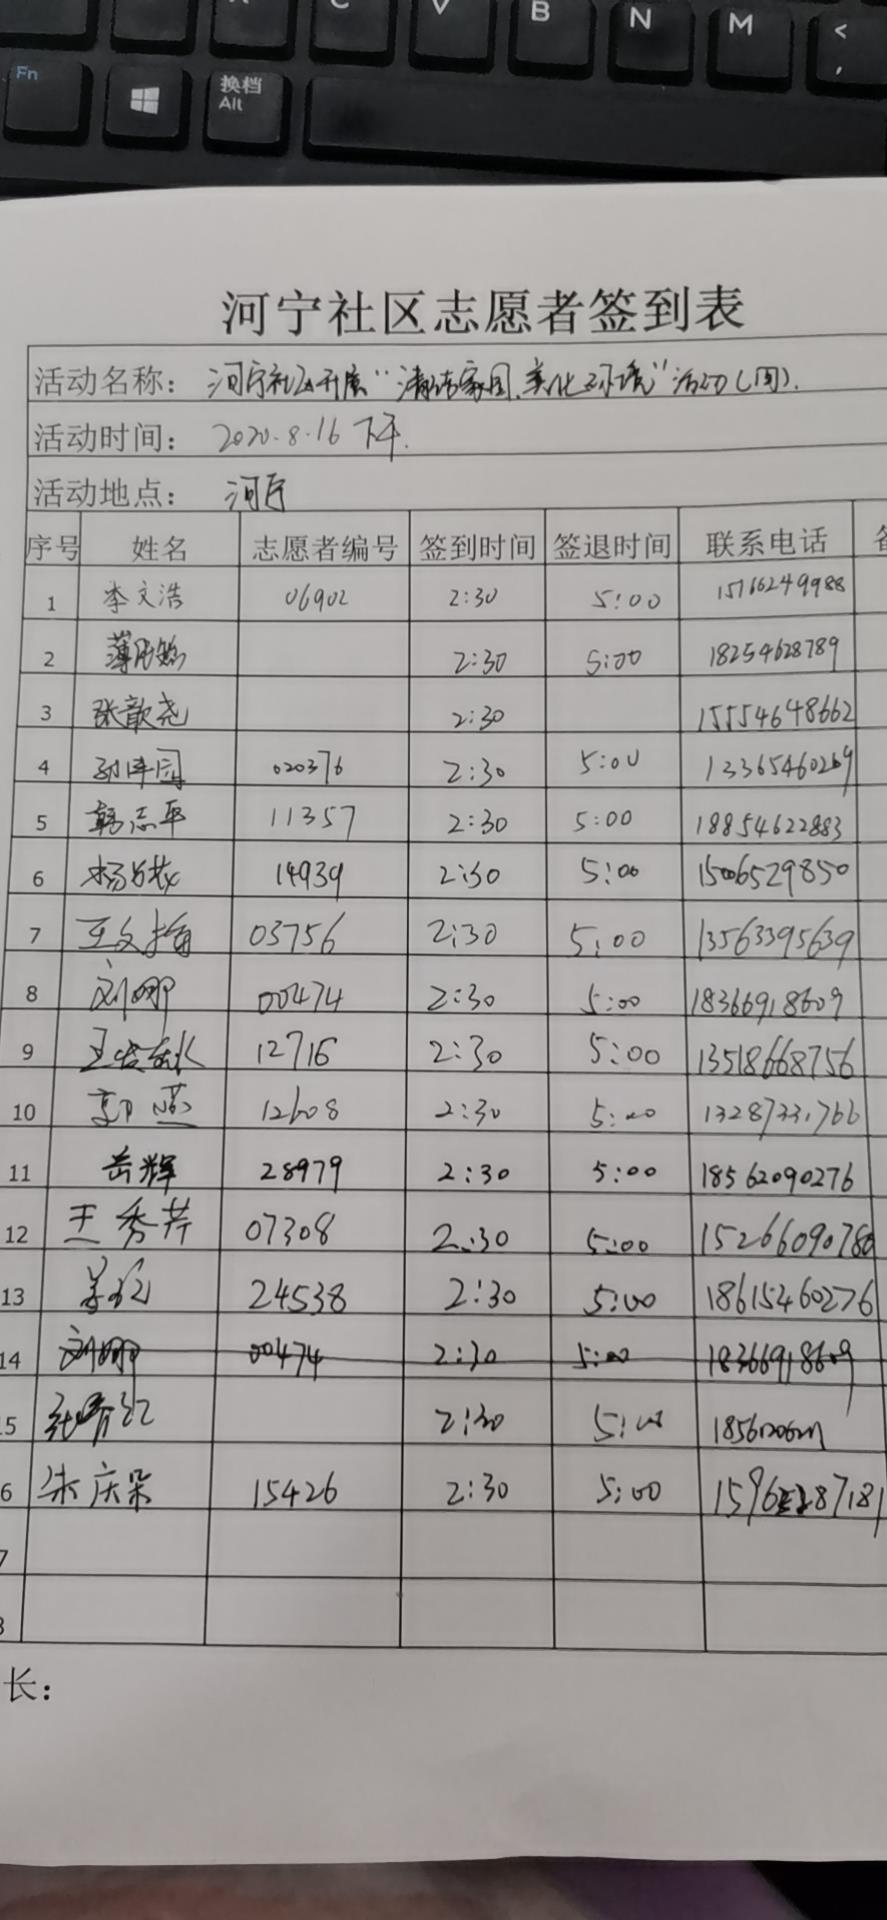 C V B N M <
,
Fn 换档
Alt
河宁社区志愿者签到表
活动名称： 河宁社区开展“清洁家园,美化环境”活动(周).
活动时间： 2020.8.16 下午.
活动地点： 河宁
序号 姓名 志愿者编号 签到时间 签退时间 联系电话
1 李文浩 06902 2:30 5:00 15166249988
2 2:30 5:00 18254628789
3 张歆尧 2:30 15554648662
4 020376 2:30 5:00 13365460269
5 韩志平 11357 2:30 5:00 18854622883
6 14939 2:30 5:00 15006529850
7 03756 2:30 5:00 13563395639
8 刘娜 00474 2:30 5:00 18366918609
9 12716 2:30 5:00 13518668756
10 郭燕 12608 2:30 5:00
11 岳辉 28979 2:30 5:00 18562090276
12 王秀芹 07308 2:30 5:00 15266090780
13 24538 2:30 5:00 18615460276
14 刘娜 00474 2:30 5:00 18366918609
5 2:30 5:00
6 朱庆朵 15426 2:30 5:00
7
8
长：